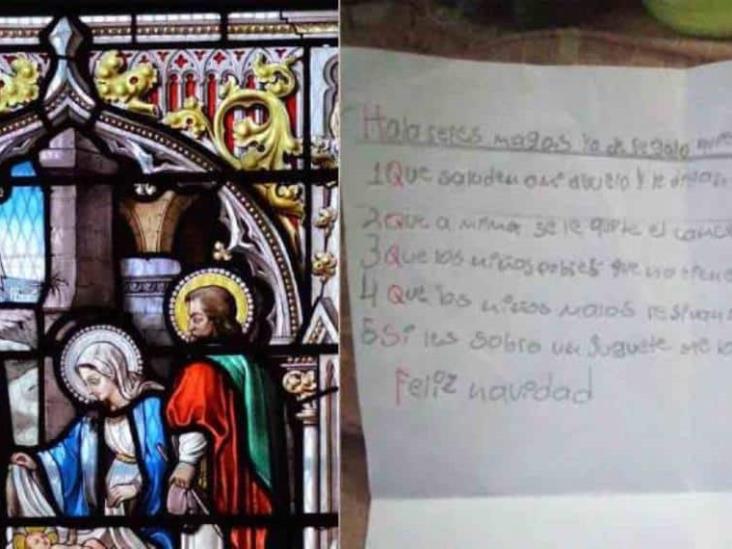 Hola reres magos Yo de regalo
1 Que saluden a mi abuelo Y le digan
2 Que a mi ma se le quite el cance
3 Que los niños pobres que no tiene
4 Que los niños malos
5 Si les sobro un juguete me lo
Feliz navidad